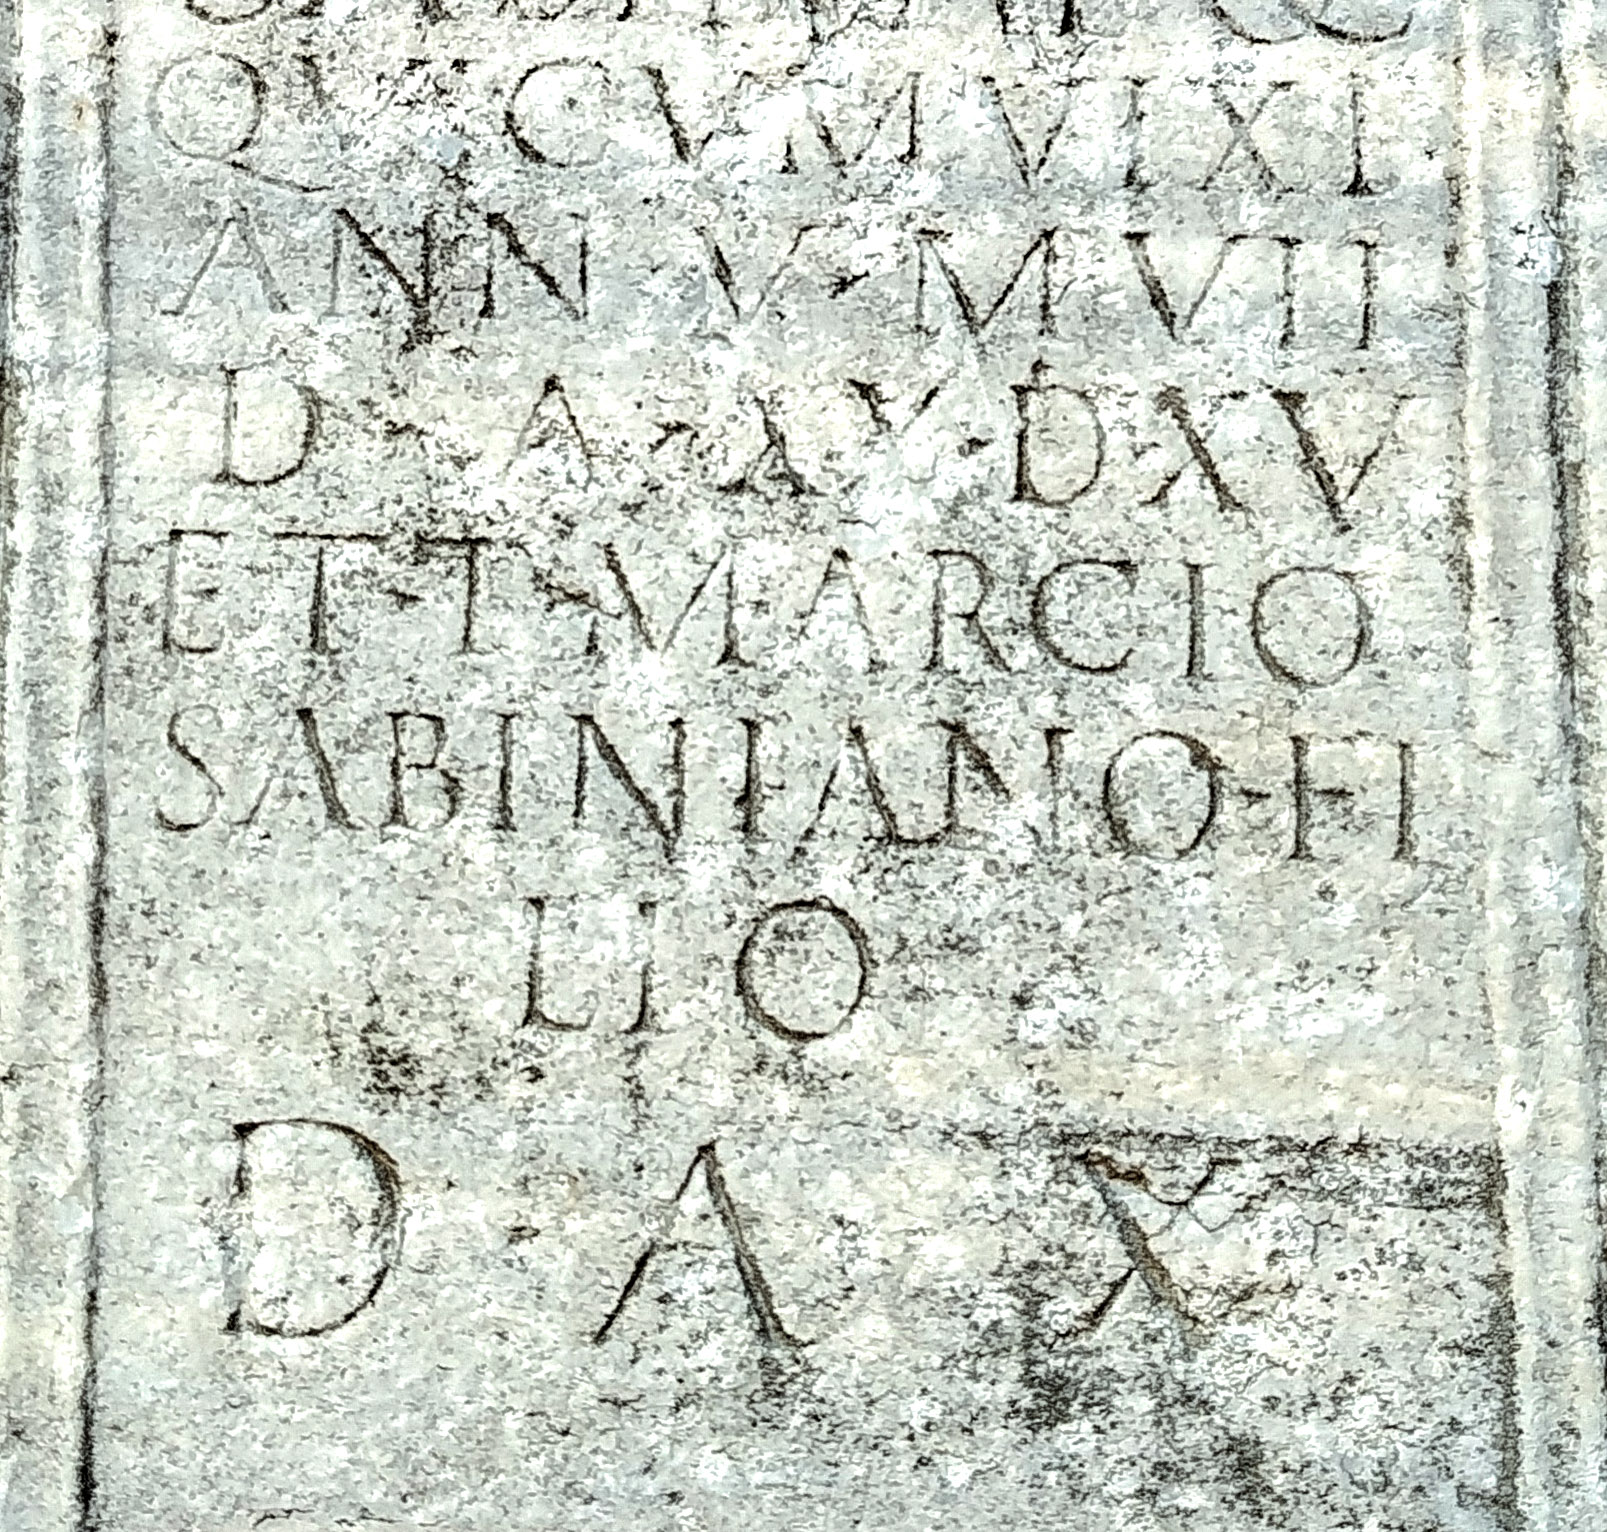 CVM VIXI
ANN V · M VII
D · A · XV · D · XV
ET · T · MARCIO
SABINIANO · FI
LIO
D · A · X